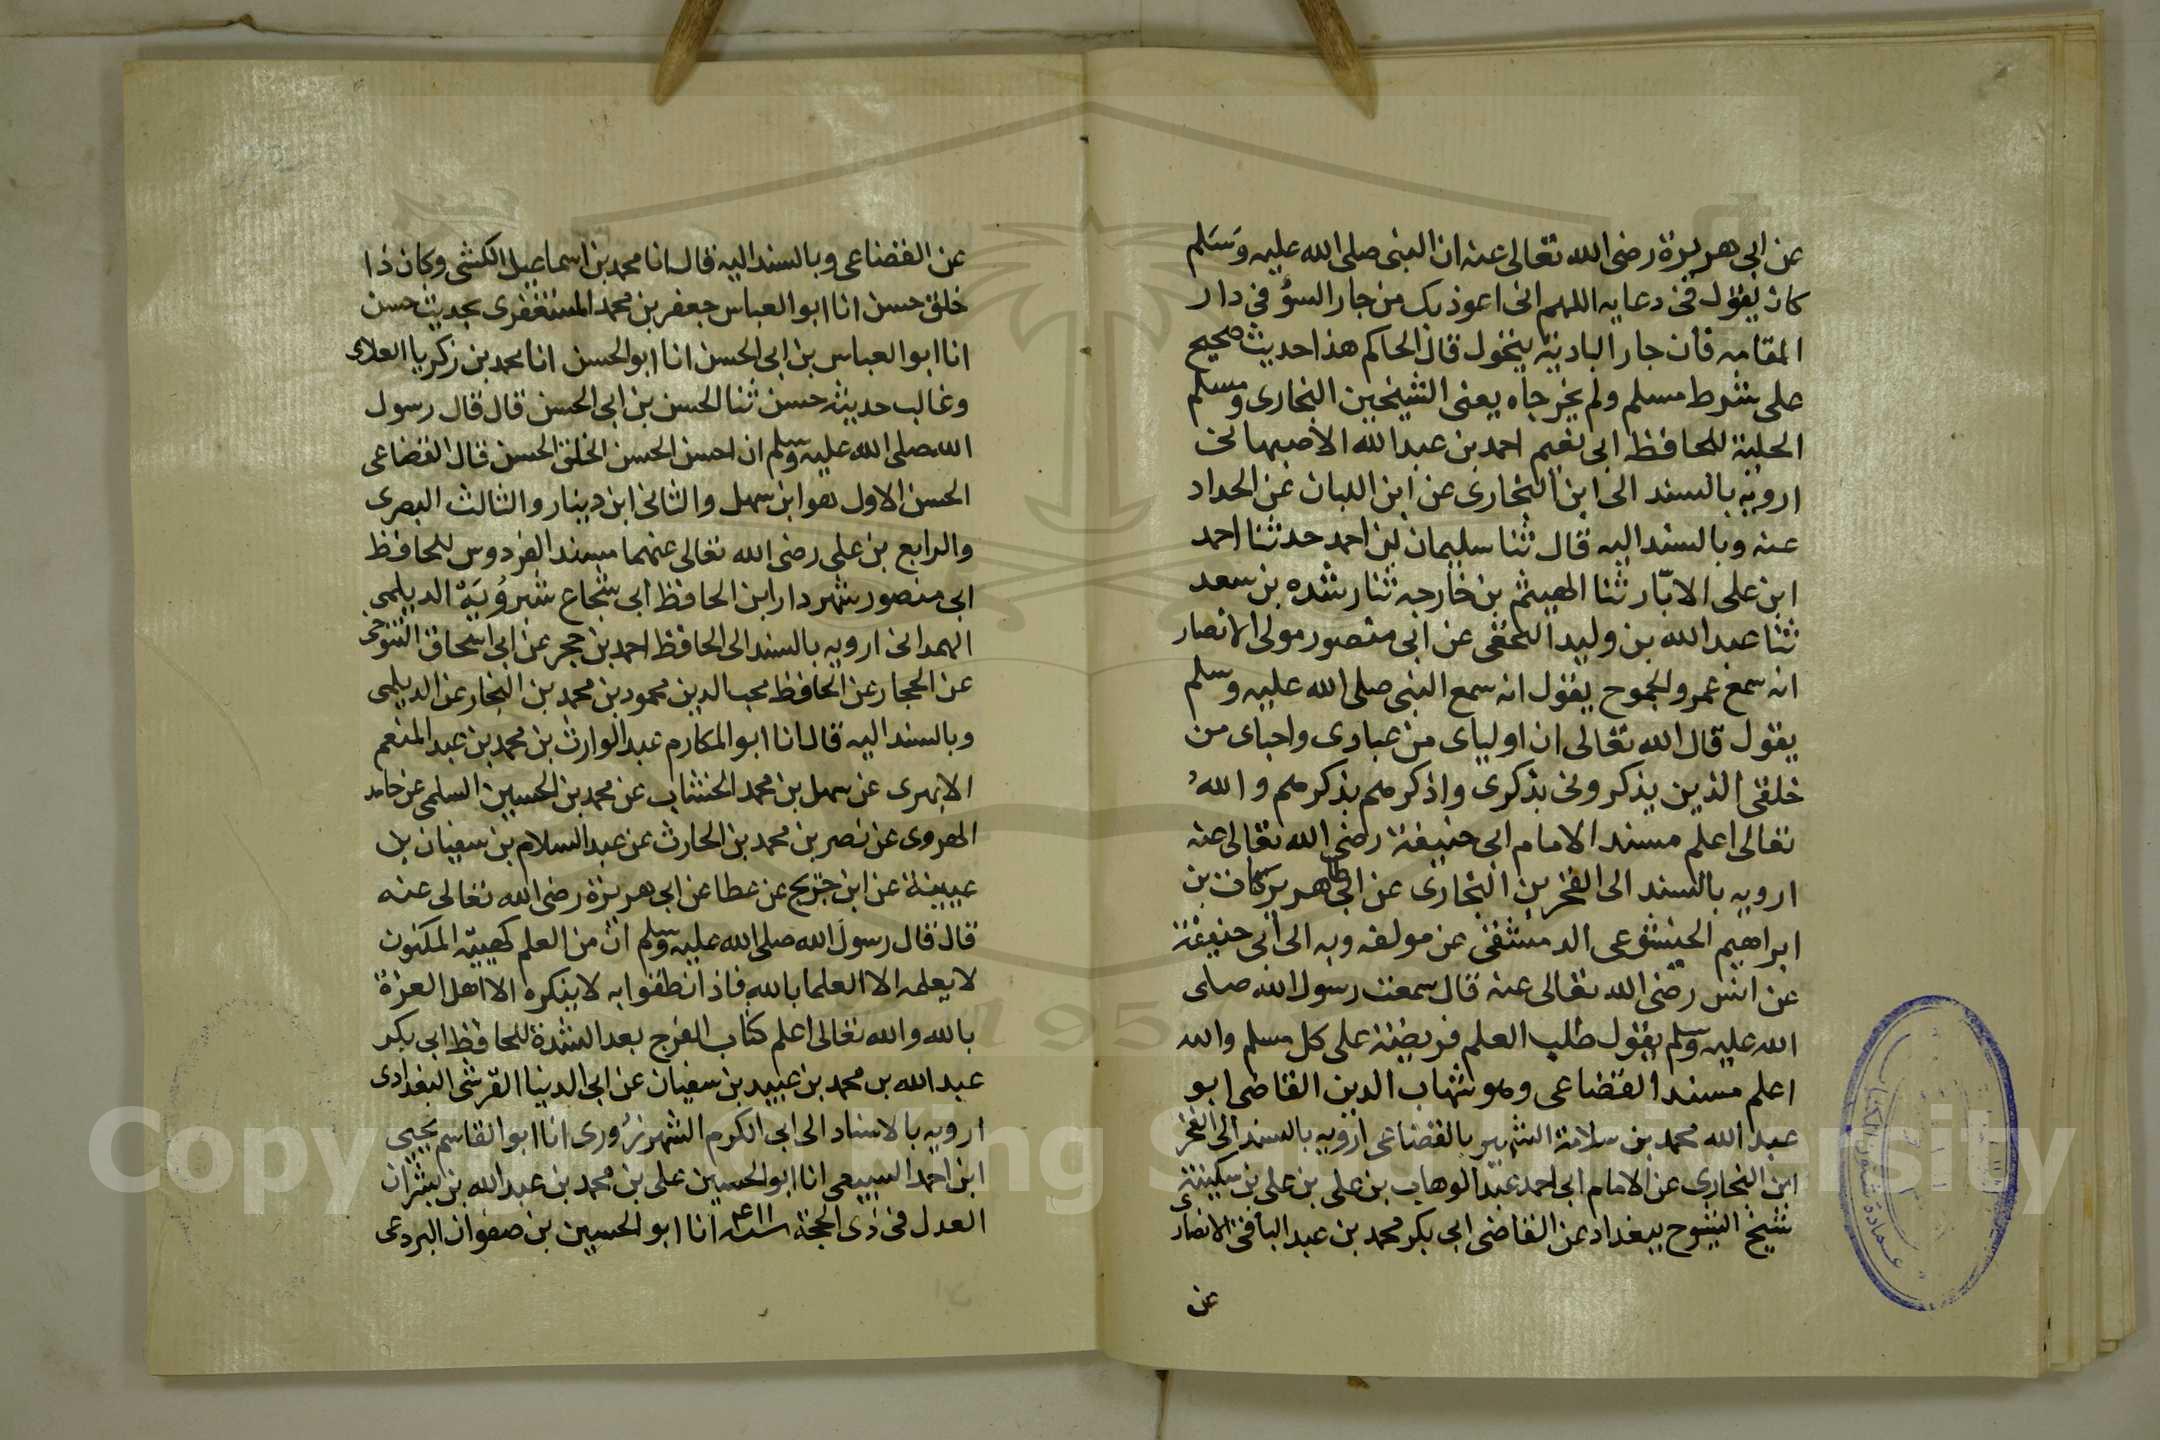 عن ابي هريرة رضى الله تعالى عنه ان النبى صلى الله عليه وسلم
كان يقول فى دعايه اللهم انى اعوذ بك من جار السؤ فى دار
المقامه فان جار البادية يتحول قال الحاكم هذا حديث صحيح
على شرط مسلم ولم يخرجاه يعنى الشيخين البخارى ومسلم
الحلية للحافظ ابى نعيم احمد بن عبد الله الاصبهانى
ارويه بالسند الى ابن البخارى عن ابن اللبان عن الحداد
عنه وبالسند اليه قال ثنا سليمان بن احمد حدثنا احمد
ابن على الابّار ثنا الهيثم بن خارجه ثنا رشده بن سعد
ثنا عبد الله بن وليد عن ابى منصور مولى الانصار
انه سمع عمرو الجموح يقول انه سمع النبى صلى الله عليه وسلم
يقول قال الله تعالى ان اولياى من عبادى واحباى من
خلقى الذين يذكرونى بذكرى واذكرهم بذكرهم والله
تعالى اعلم مسند الامام ابى حنيفة رضى الله تعالى عنه
ارويه بالسند الى الفخر بن البخارى عن ابى طاهر بركات بن
ابراهيم الخشوعى الدمشقى عن مولفه وبه الى ابى حنيفة
عن انس رضى الله تعالى عنه قال سمعت رسول الله صلى
الله عليه وسلم يقول طلب العلم فريضة على كل مسلم والله
اعلم مسند القضاعى وهو شهاب الدين القاضى ابو
عبد الله محمد بن سلامة الشهير بالقضاعى ارويه بالسند الى الفخر
ابن البخارى عن الامام ابى احمد عبد الوهاب بن على بن على بن سكينة
شيخ الشيوخ ببغداد عن القاضى ابى بكر محمد بن عبد الباقى الانصارى
عن
عن القضاعى وبالسند اليه قال انا محمد بن اسماعيل الكشى وكان ذا
خلق حسن انا ابو العباس جعفر بن محمد المستغفرى بحديث حسن
انا ابو العباس بن ابى الحسن انا ابو الحسن انا محمد بن زكريا العلاى
وغالب حديثه حسن ثنا الحسن بن ابى الحسن قال قال رسول
الله صلى الله عليه وسلم ان احسن الحسن الخلق الحسن قال القضاعى
الحسن الاول هو ابن سهل والثانى ابن دينار والثالث البصرى
والرابع بن على رضى الله تعالى عنهما مسند الفردوس للحافظ
ابى منصور شهردار ابن الحافظ ابى شجاع شيرويه الديلمى
الهمدانى ارويه بالسند الى الحافظ احمد بن حجر عن ابى اسحاق التنوخى
عن الحجار عن الحافظ محب الدين محمود بن محمد بن النجار عن الديلمى
وبالسند اليه قال انا ابو المكارم عبد الوارث بن محمد بن عبد المنعم
الابهرى عن سهل بن محمد الخشاب عن محمد بن الحسين السلمى عن حامد
الهروى عن نصر بن محمد بن الحارث عن عبد السلام بن سفيان بن
عيينة عن ابن جريج عن عطا عن ابى هريرة رضى الله تعالى عنه
قال قال رسول الله صلى الله عليه وسلم ان من العلم كهيئة المكنون
لا يعلمه الا العلما بالله فاذا نطقوا به لا ينكره الا اهل العزة
بالله والله تعالى اعلم كتاب الفرج بعد الشدة للحافظ ابى بكر
عبد الله بن محمد بن عبيد بن سفيان عن ابى الدنيا القرشى البغدادى
ارويه بالاسناد الى ابى الكرم الشهرزورى انا ابو القاسم يحيى
ابن احمد السيبعى انا ابو الحسين على بن محمد بن عبد الله بن بشران
العدل فى ذى الحجة سنة ٤١١ انا ابو الحسين بن صفوان البردعى